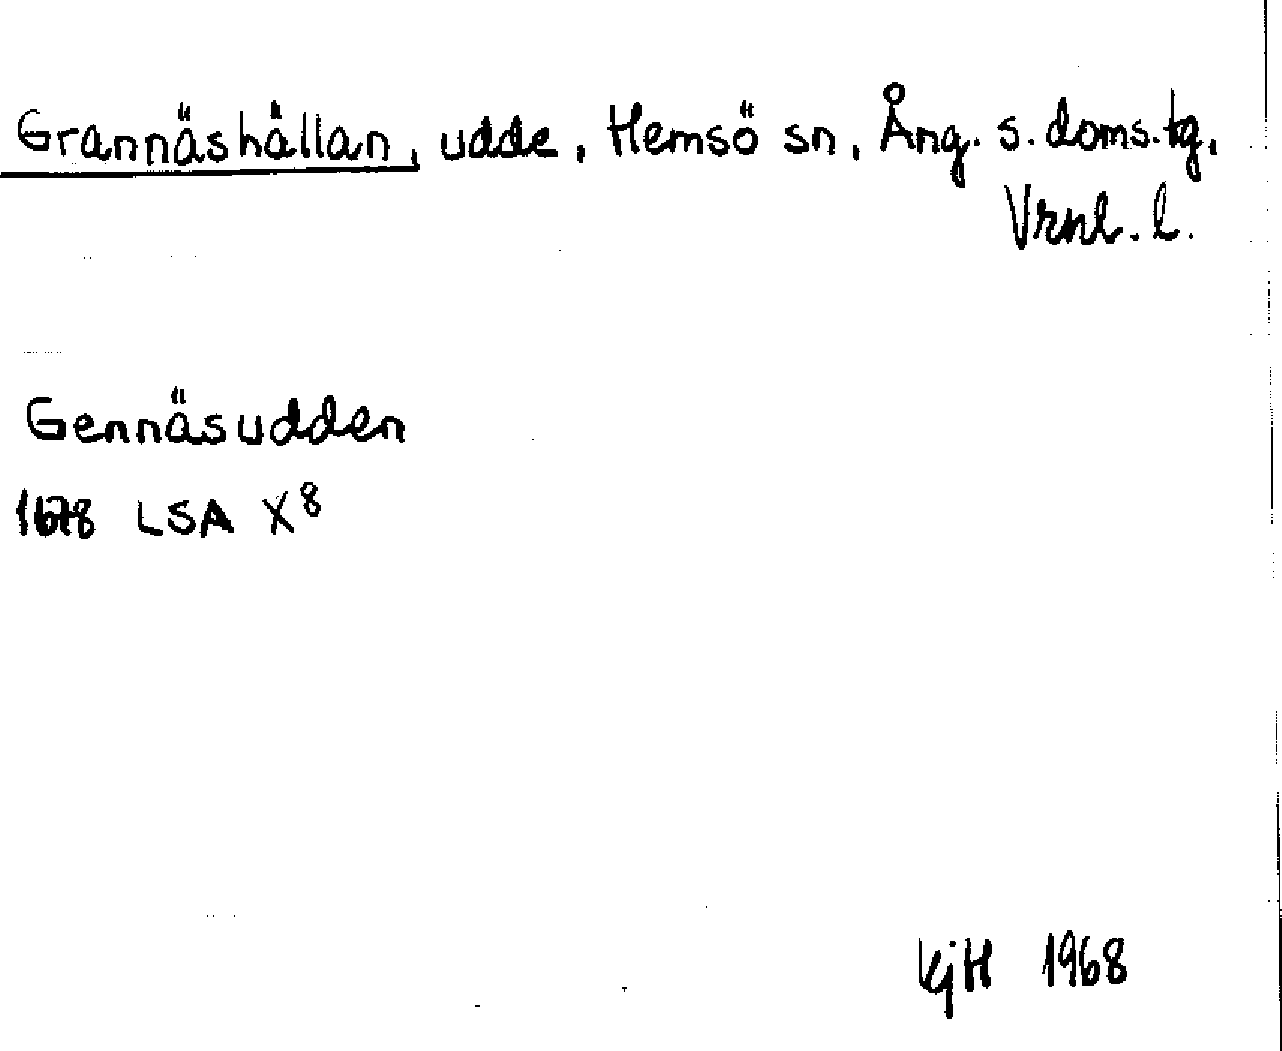 Grannäshällan, udde, Hemsö sn, Ång. s. doms. tg,
Vrnl. l.
Gennäsudden
1678 LSA X⁸
KjH 1968